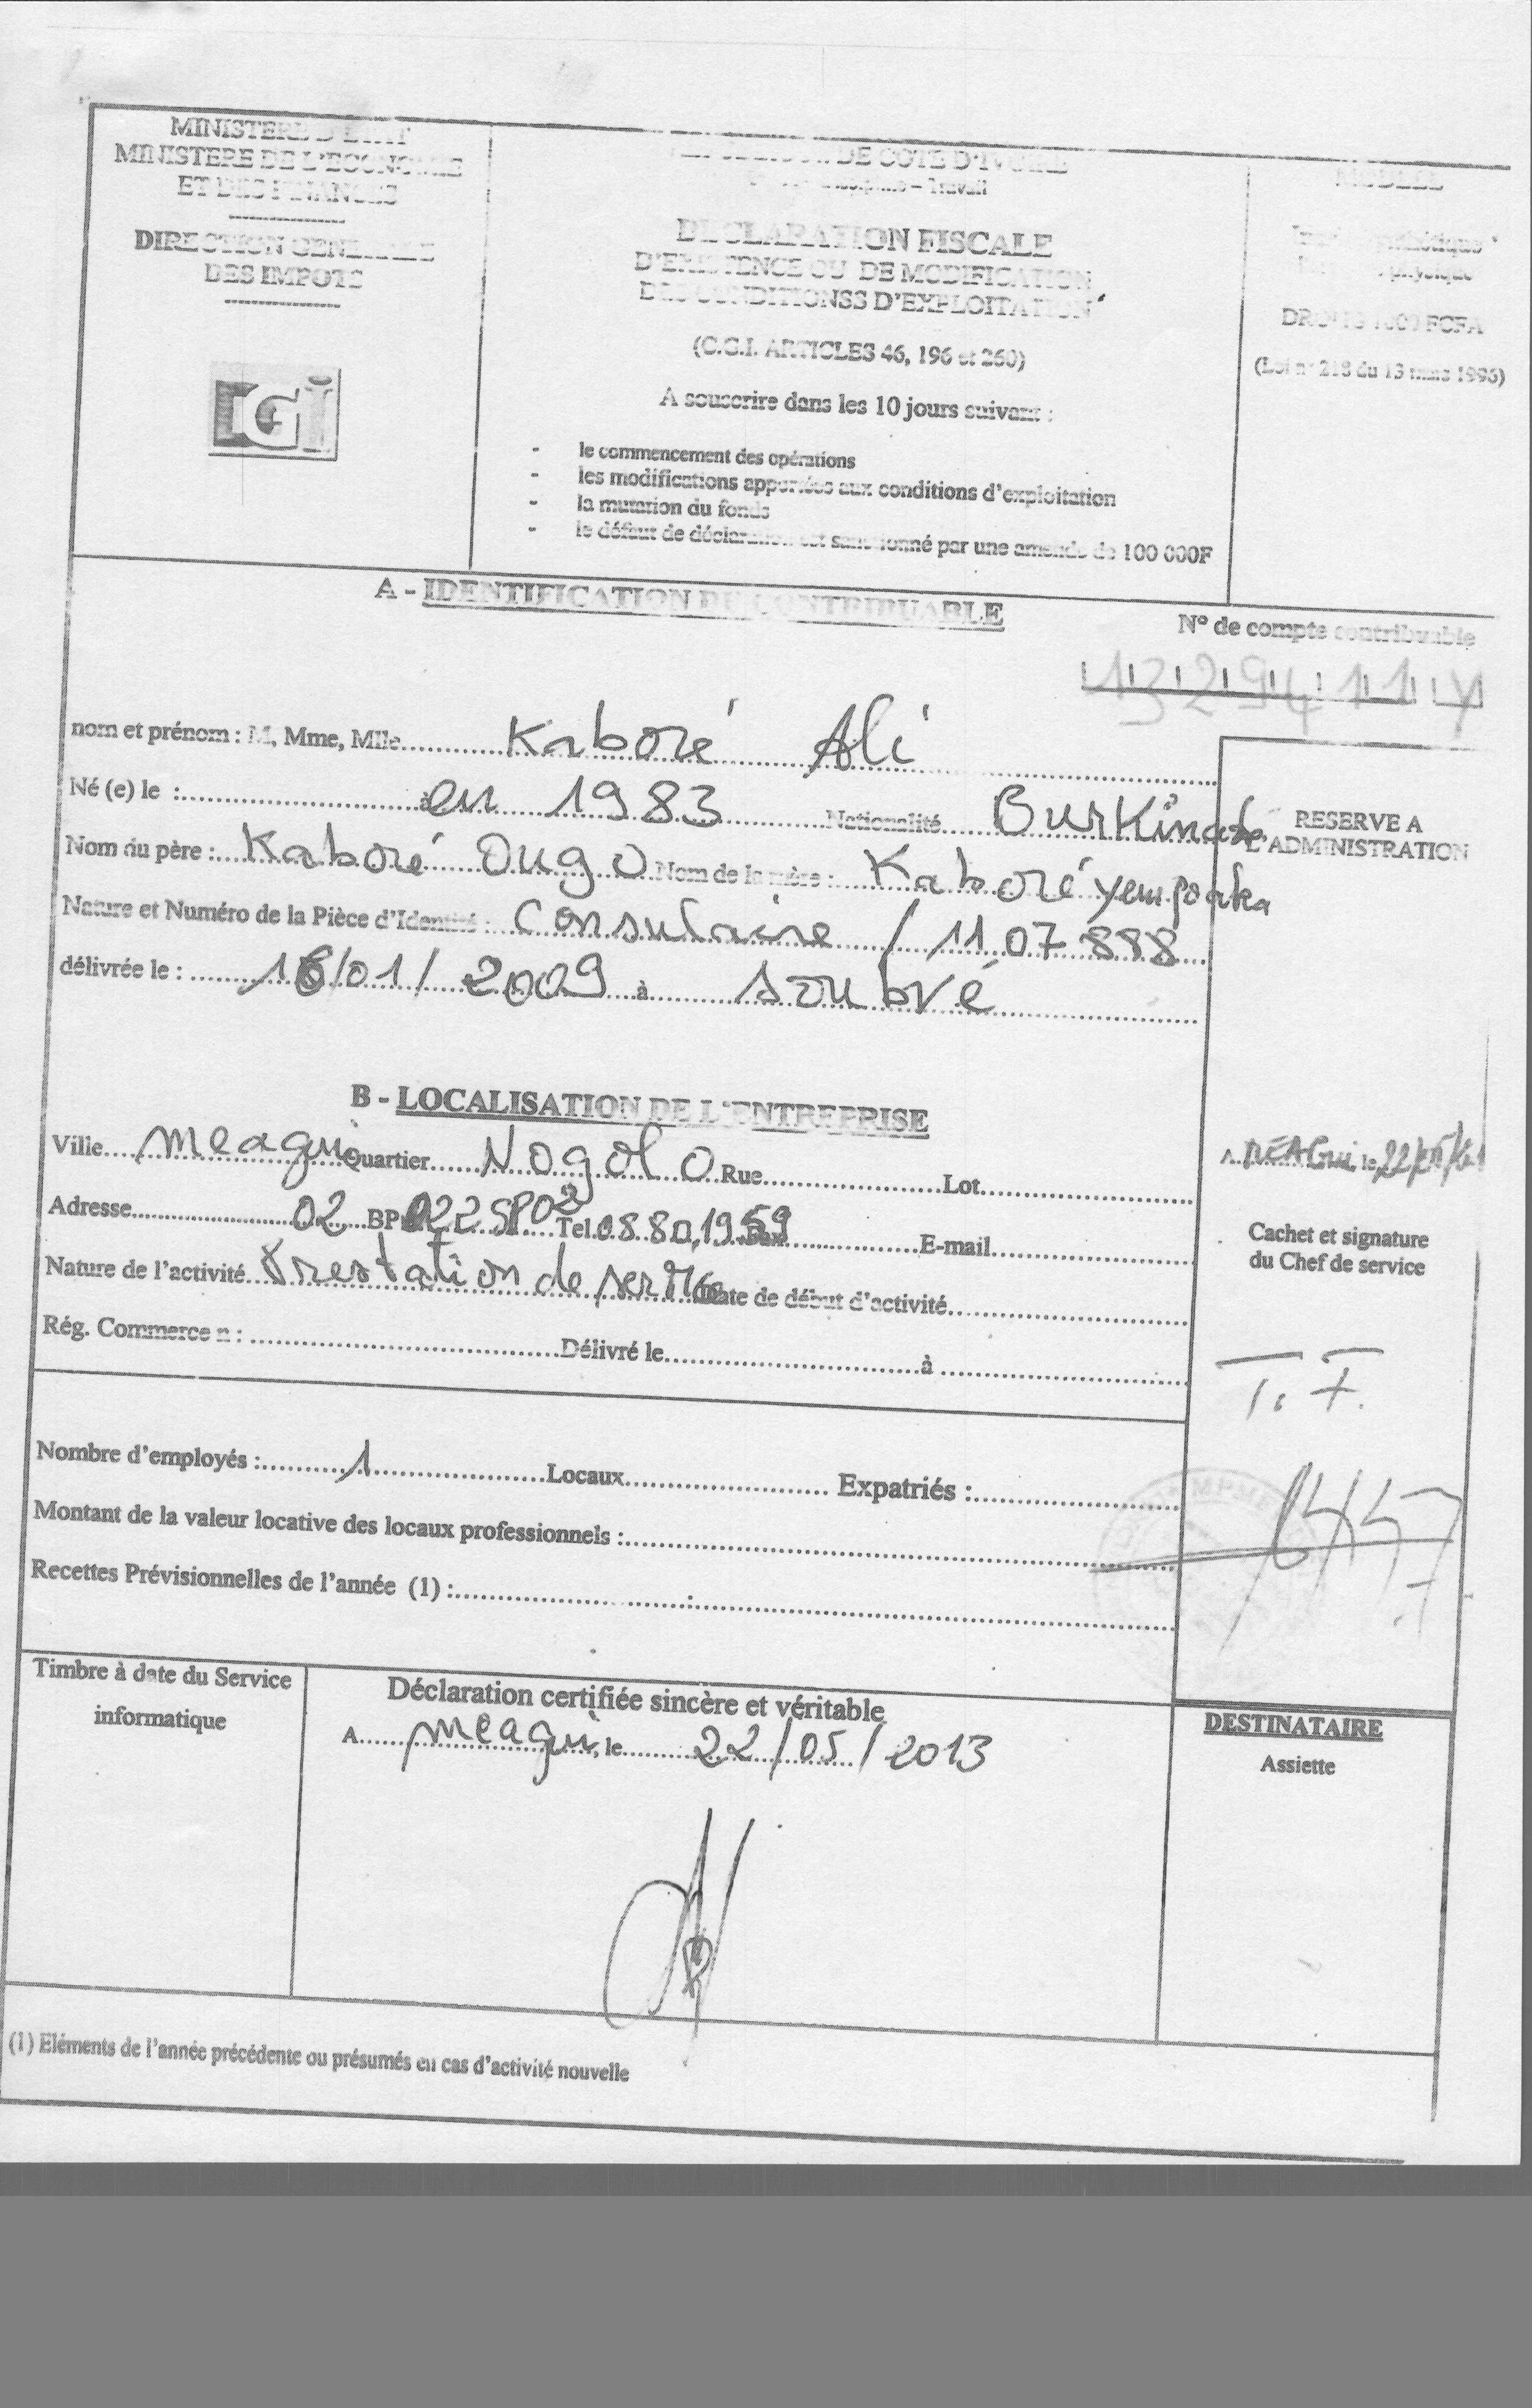 MINISTERE D'ETAT
MINISTERE DE L'ECONOMIE
ET DES FINANCES
DIRECTION GENERALE
DES IMPOTS
DGI
DE COTE D'IVOIRE
– Travail
DECLARATION FISCALE
D'EXISTENCE OU DE MODIFICATION
DES CONDITIONSS D'EXPLOITATION
(C.G.I. ARTICLES 46, 196 et 260)
A souscrire dans les 10 jours suivant :
- le commencement des opérations
- les modifications apportées aux conditions d'exploitation
- la mutation du fonds
- le défaut de déclaration est sanctionné par une amende de 100 000F
MODELE
physique
FCFA
(Loi n° 218 du 13 mars 1996)
A - IDENTIFICATION DU CONTRIBUABLE
N° de compte contribuable
1329411Y
nom et prénom : M, Mme, Mlle Kaboré Ali
Né (e) le : à en 1983 Nationalité Burkinabé
Nom du père : Kaboré Ougo Nom de la mère : Kaboré Yempoaka
Nature et Numéro de la Pièce d'Identité : Consulaire / 11 07 888
délivrée le : 16/01/2009 à soubré
RESERVE A
L'ADMINISTRATION
B - LOCALISATION DE L'ENTREPRISE
Ville meagui Quartier Nogolo Rue Lot
Adresse 02 BP 022 SP02 Tel 08 80 19 59 Fax E-mail
Nature de l'activité Prestation de service Date de début d'activité
Rég. Commerce n : Délivré le à
A MEAGui, le
Cachet et signature
du Chef de service
T. F.
Nombre d'employés : 1 Locaux Expatriés :
Montant de la valeur locative des locaux professionnels :
Recettes Prévisionnelles de l'année (1) :
Timbre à date du Service
informatique
Déclaration certifiée sincère et véritable
A meagui, le 22/05/2013
DESTINATAIRE
Assiette
(1) Eléments de l'année précédente ou présumés en cas d'activité nouvelle